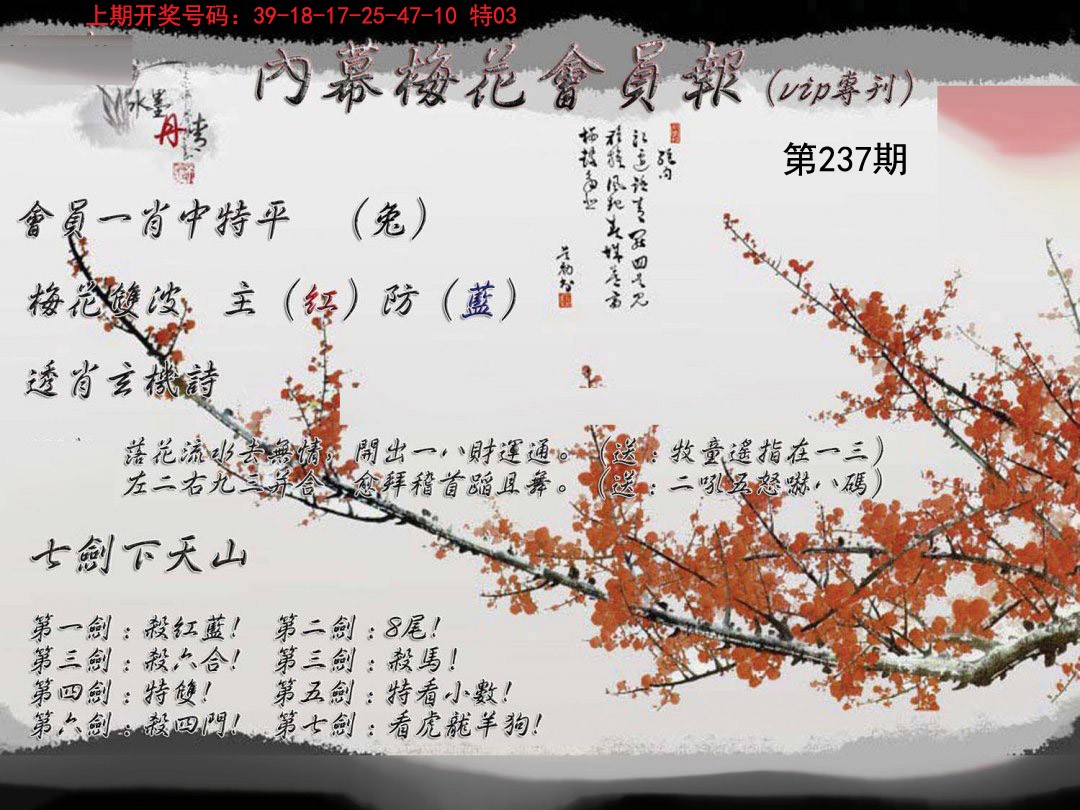 上期开奖号码：39-18-17-25-47-10 特03
內幕梅花會員報（vip專刊）
水墨
丹
第237期
會員一肖中特平 （兔）
梅花雙波 主（紅）防（藍）
透肖玄機詩
落花流水去無情，開出一八財運通。（送：牧童遙指在一三）
左二右九三并合，愈拜稽首蹈且舞。（送：二吼五怒嚇八碼）
七劍下天山
第一劍：殺紅藍！ 第二劍：8尾！
第三劍：殺六合！ 第三劍：殺馬！
第四劍：特雙！ 第五劍：特看小數！
第六劍：殺四門！ 第七劍：看虎龍羊狗！